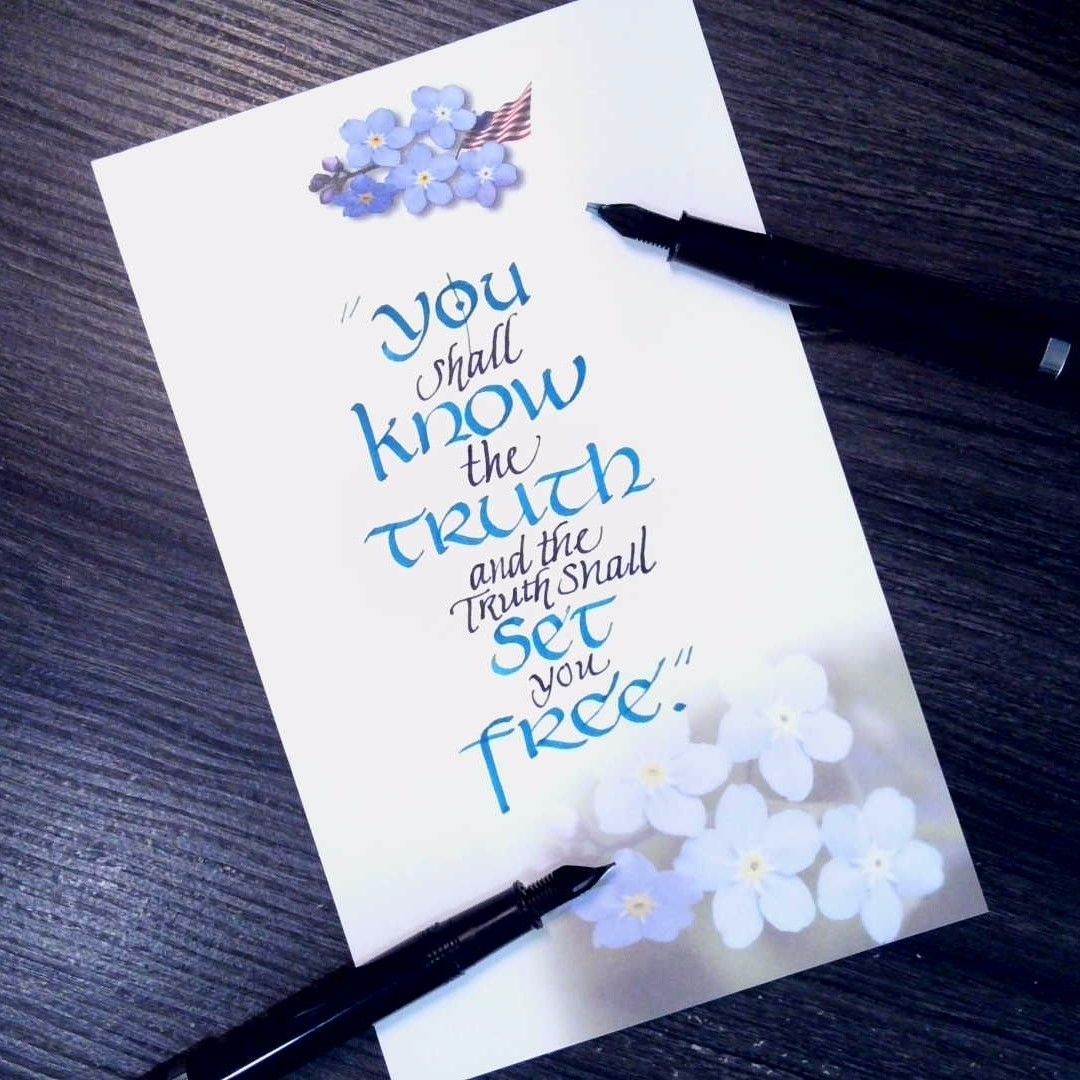 "you
shall
know
the
TRUTH
and the
Truth Shall
SET
you
free."